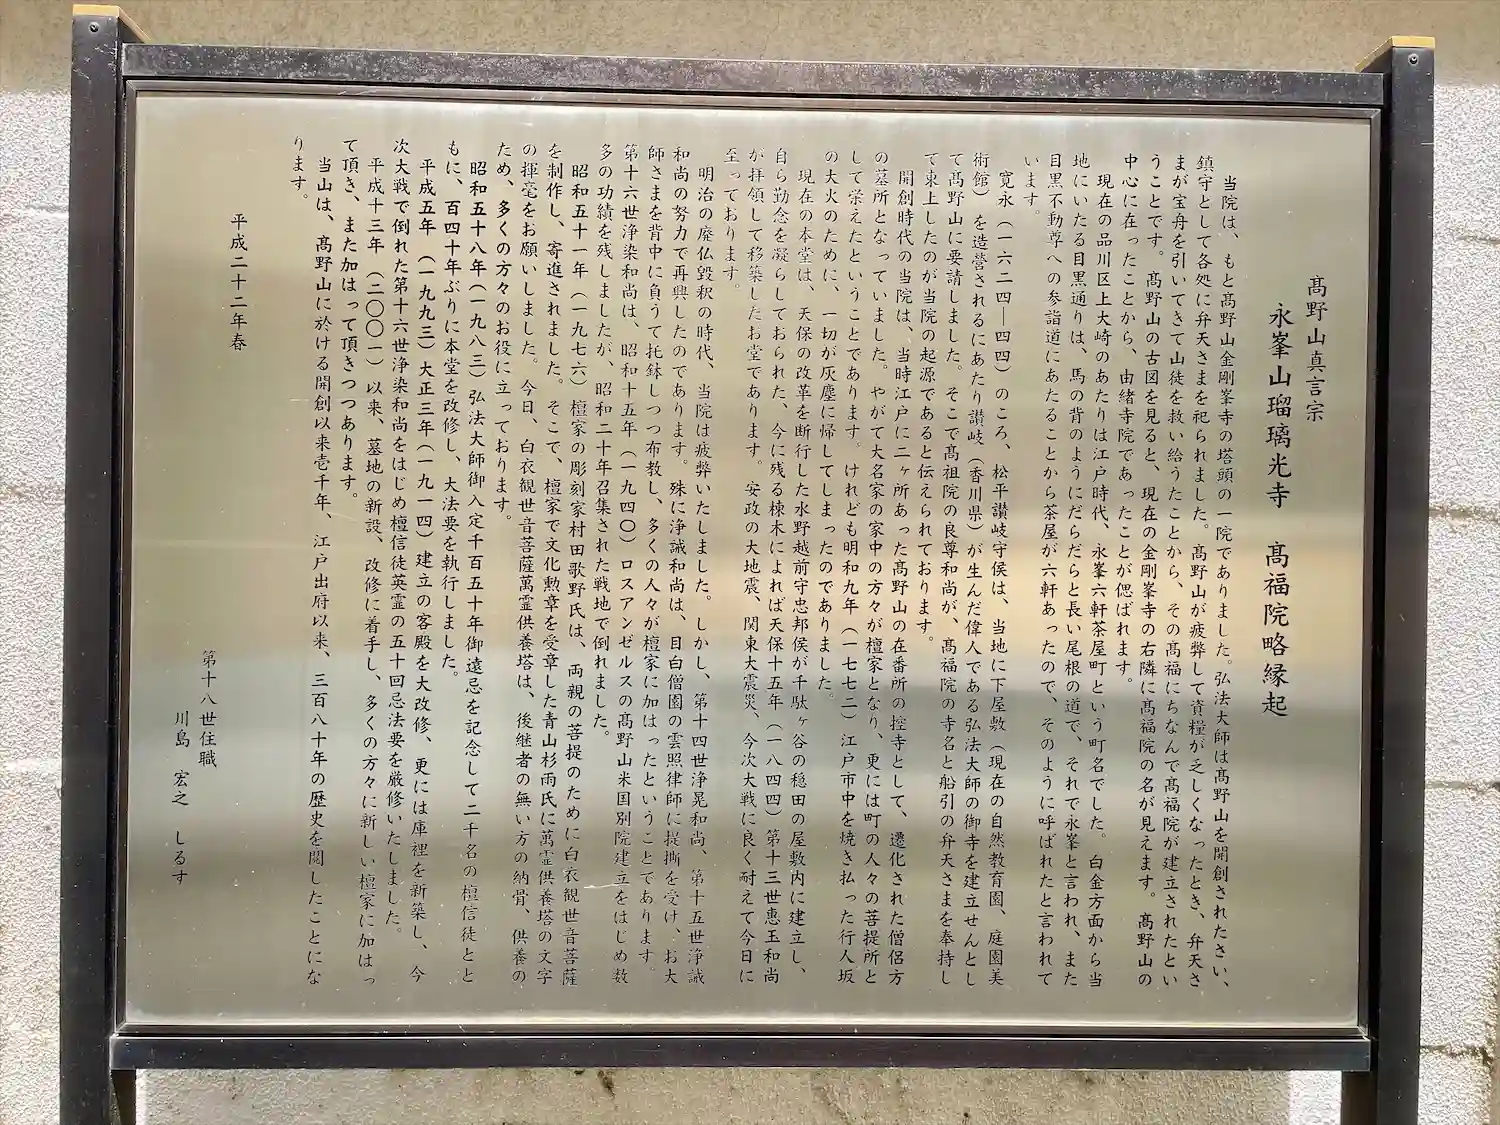 髙野山真言宗
永峯山瑠璃光寺　髙福院略縁起
当院は、もと髙野山金剛峯寺の塔頭の一院でありました。弘法大師は髙野山を開創されたさい、
鎮守として各処に弁天さまを祀られました。髙野山が疲弊して資糧が乏しくなったとき、弁天さ
まが宝舟を引いてきて山徒を救い給うたことから、その髙福にちなんで髙福院が建立されたとい
うことです。髙野山の古図を見ると、現在の金剛峯寺の右隣に髙福院の名が見えます。髙野山の
中心に在ったことから、由緒寺院であったことが偲ばれます。
現在の品川区上大崎のあたりは江戸時代、永峯六軒茶屋町という町名でした。白金方面から当
地にいたる目黒通りは、馬の背のようにだらだらと長い尾根の道で、それで永峯と言われ、また
目黒不動尊への参詣道にあたることから茶屋が六軒あったので、そのように呼ばれたと言われて
います。
寛永（一六二四―四四）のころ、松平讃岐守侯は、当地に下屋敷（現在の自然教育園、庭園美
術館）を造営されるにあたり讃岐（香川県）が生んだ偉人である弘法大師の御寺を建立せんとし
て髙野山に要請しました。そこで髙祖院の良尊和尚が、髙福院の寺名と船引の弁天さまを奉持し
て東上したのが当院の起源であると伝えられております。
開創時代の当院は、当時江戸に二ヶ所あった髙野山の在番所の控寺として、遷化された僧侶方
の墓所となっていました。やがて大名家の家中の方々が檀家となり、更には町の人々の菩提所と
して栄えたということであります。けれども明和九年（一七七二）江戸市中を焼き払った行人坂
の大火のために、一切が灰塵に帰してしまったのでありました。
現在の本堂は、天保の改革を断行した水野越前守忠邦侯が千駄ヶ谷の穏田の屋敷内に建立し、
自ら勤念を凝らしておられた、今に残る棟木によれば天保十五年（一八四四）第十三世惠玉和尚
が拝領して移築したお堂であります。安政の大地震、関東大震災、今次大戦に良く耐えて今日に
至っております。
明治の廃仏毀釈の時代、当院は疲弊いたしました。しかし、第十四世浄晃和尚、第十五世浄誡
和尚の努力で再興したのであります。殊に浄誡和尚は、目白僧園の雲照律師に提撕を受け、お大
師さまを背中に負うて托鉢しつつ布教し、多くの人々が檀家に加はったということであります。
第十六世浄染和尚は、昭和十五年（一九四〇）ロスアンゼルスの髙野山米国別院建立をはじめ数
多の功績を残しましたが、昭和二十年召集された戦地で倒れました。
昭和五十一年（一九七六）檀家の彫刻家村田歌野氏は、両親の菩提のために白衣観世音菩薩
を制作し、寄進されました。そこで、檀家で文化勲章を受章した青山杉雨氏に萬霊供養塔の文字
の揮毫をお願いしました。今日、白衣観世音菩薩萬霊供養塔は、後継者の無い方の納骨、供養の
ため、多くの方々のお役に立っております。
昭和五十八年（一九八三）弘法大師御入定千百五十年御遠忌を記念して二千名の檀信徒とと
もに、百四十年ぶりに本堂を改修し、大法要を執行しました。
平成五年（一九九三）大正三年（一九一四）建立の客殿を大改修、更には庫裡を新築し、今
次大戦で倒れた第十六世浄染和尚をはじめ檀信徒英霊の五十回忌法要を厳修いたしました。
平成十三年（二〇〇一）以来、墓地の新設、改修に着手し、多くの方々に新しい檀家に加はっ
て頂き、また加はって頂きつつあります。
当山は、髙野山に於ける開創以来壱千年、江戸出府以来、三百八十年の歴史を閲したことにな
ります。
平成二十二年春
第十八世住職
川島　宏之　しるす